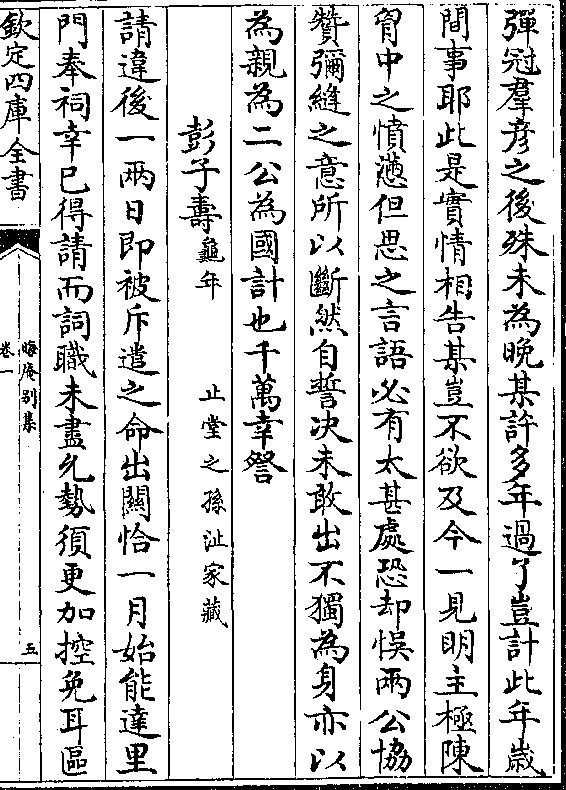 彈冠羣彦之後殊未為晚某許多年過了豈計此年歲
間事耶此是實情相告某豈不欲及今一見明主極陳
胷中之憤懣但思之言語必有太甚處恐却悞兩公協
贊彌縫之意所以斷然自誓决未敢出不獨為身亦以
為親為二公為國計也千萬幸詧
彭子壽龜年 止堂之孫沚家藏
請違後一兩日即被斥遣之命出關恰一月始能達里
門奉祠幸已得請而詞職未盡允勢須更加控免耳區
欽定四庫全書
晦庵别集
卷一
五